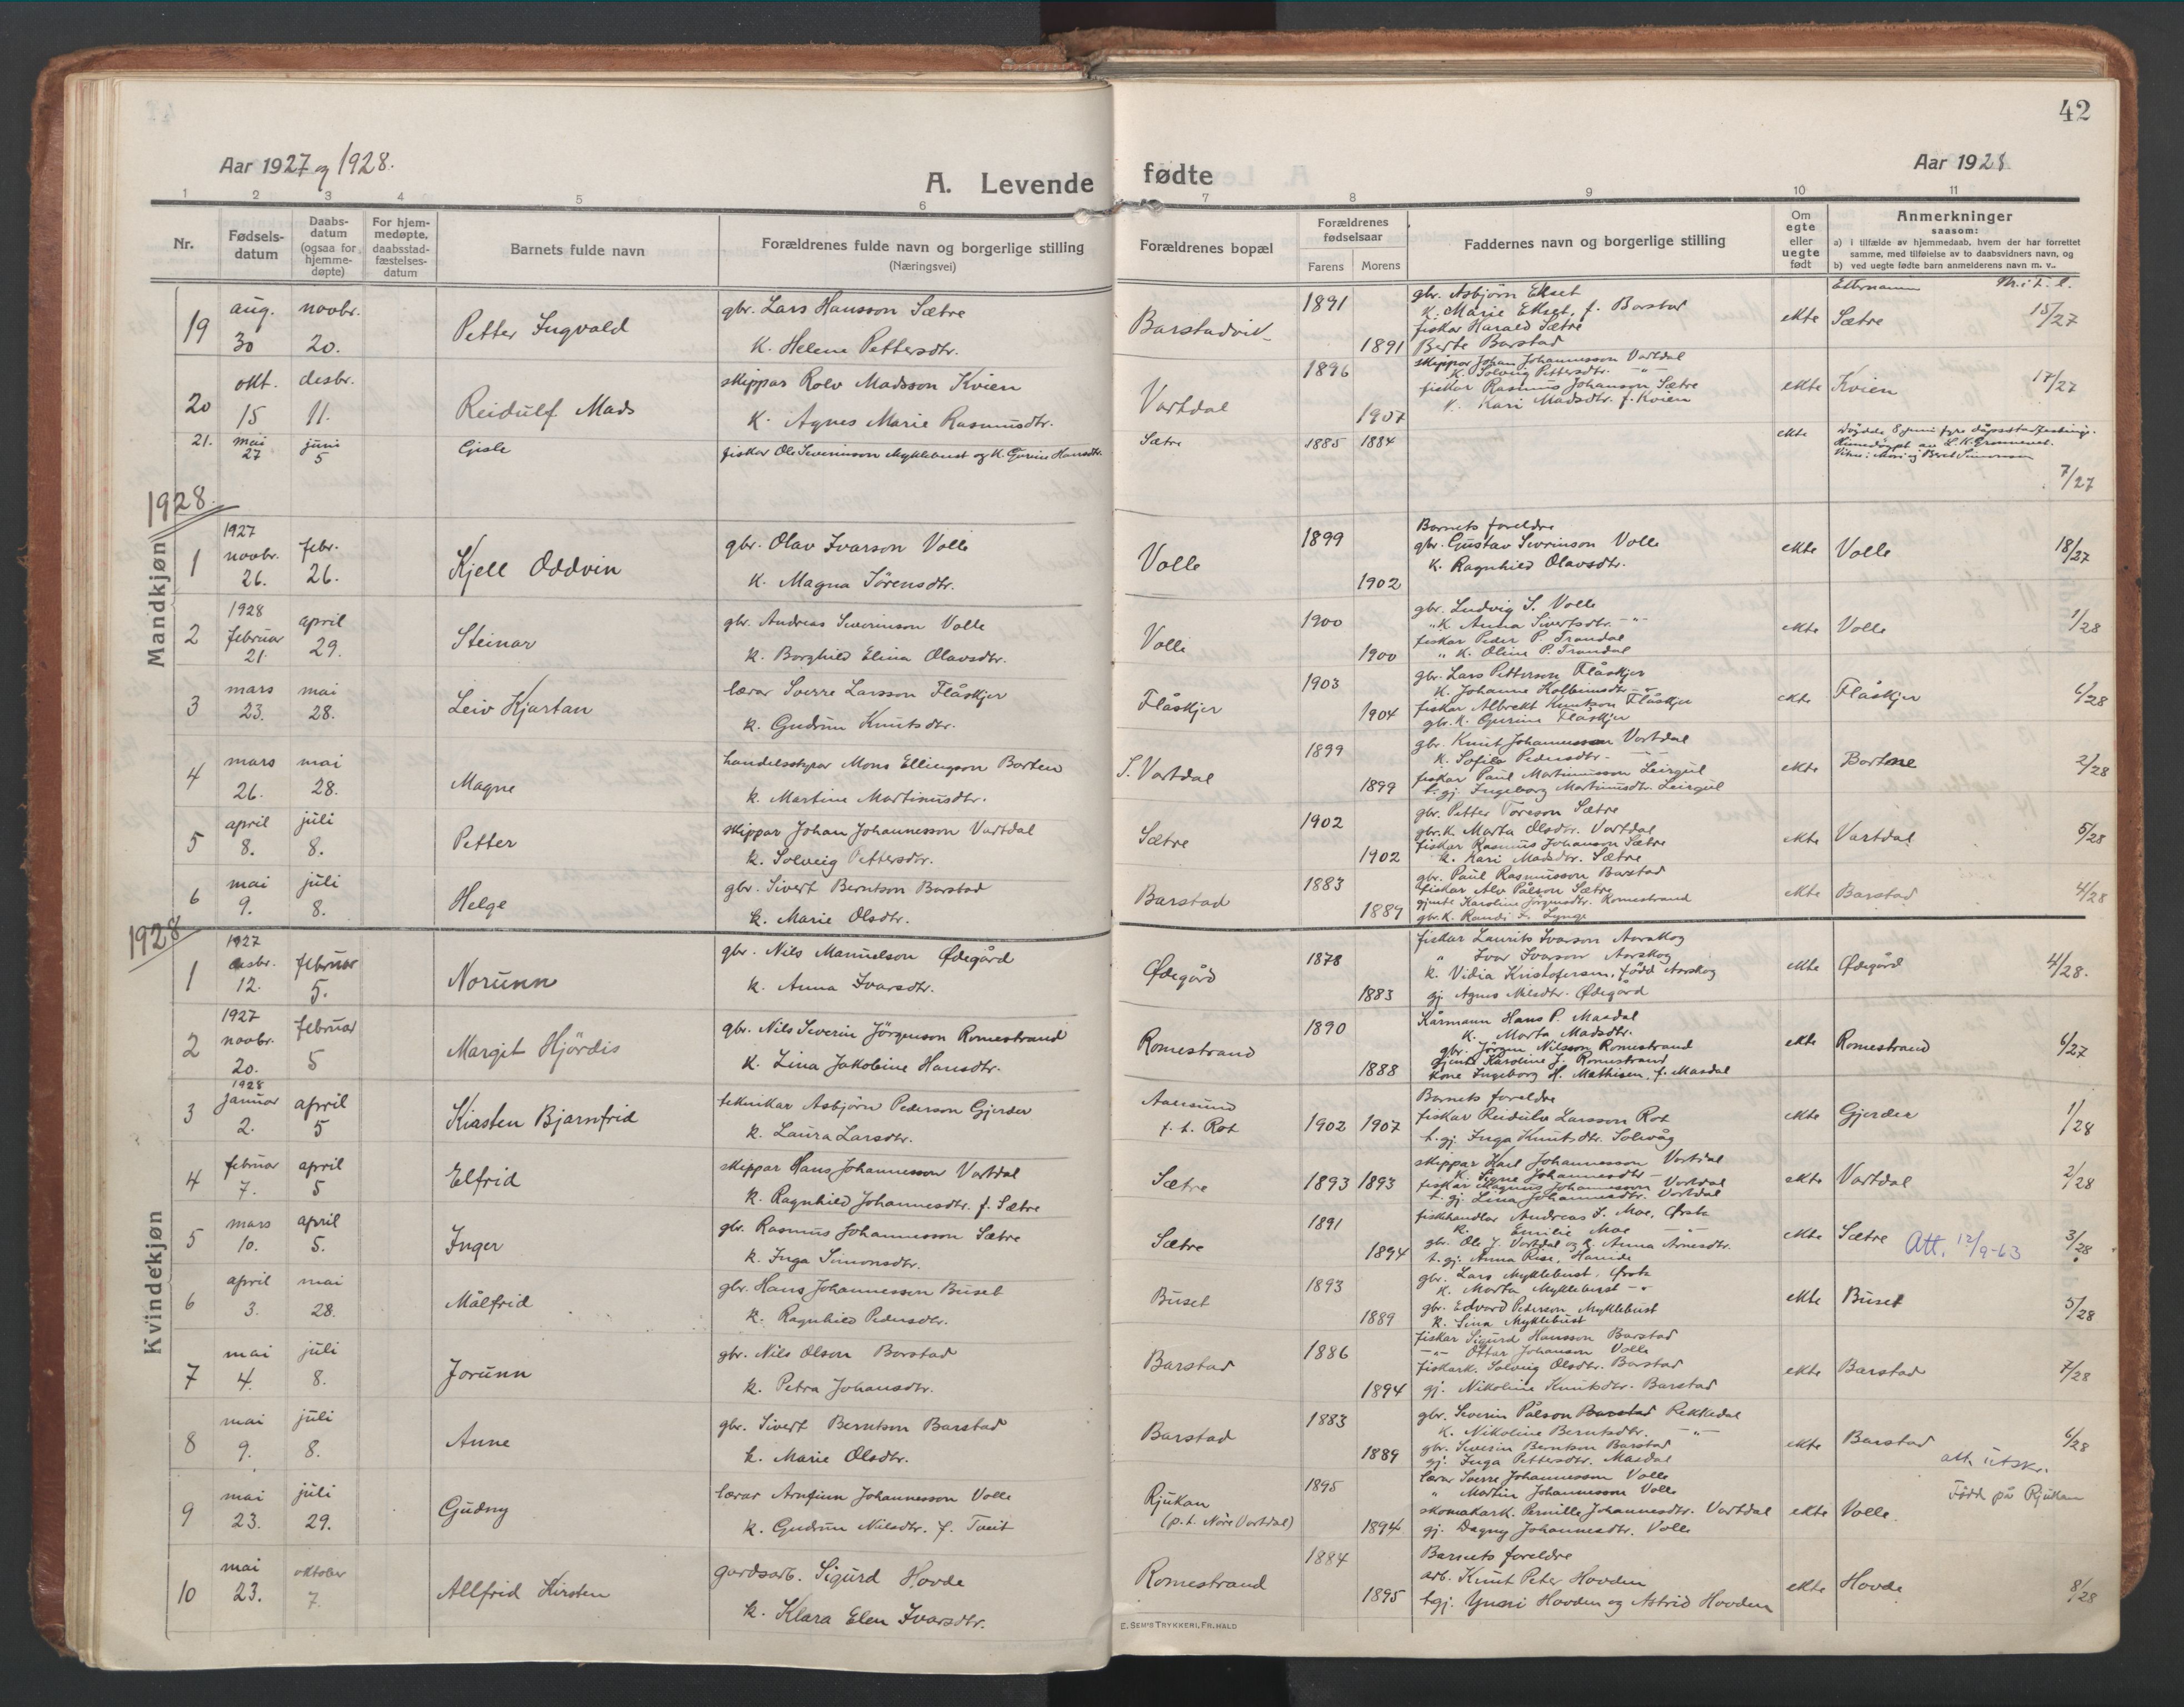 42
Aar 1927 og 1928.
Aar 1928
A. Levende fødte
1 2 3 4 5 6 7 8 9 10 11
Nr.
Fødsels-datum
Daabs-datum (ogsaa for hjemme-døpte)
For hjem-medøpte, daabsstad-fæstelses-datum
Barnets fulde navn
Forældrenes fulde navn og borgerlige stilling
(Næringsvei)
Forældrenes bopæl
Forældrenes fødselsaar
Farens Morens
Faddernes navn og borgerlige stilling
Om egte eller uegte født
Anmerkninger
saasom:
a) i tilfælde av hjemmedaab, hvem der har forrettet samme, med tilføielse av to daabsvidners navn, og
b) ved uegte fødte barn anmelderens navn m. v..
Etternamn
19 aug. 30 novbr. 20. Petter Ingvald
gbr. Lars Hansson Sætre
K. Helene Pettersdtr.
Barstadvik 1891 1891
gbr. Asbjørn Ekset
K. Marie Ekset, f. Barstad
fiskar Harald Sætre
Berte Barstad
ekte Sætre 15/27
20 okt. 15 desbr. 11. Reidulf Mads
skippar Rolv Madsson Kvien
K. Agnes Marie Rasmusdtr.
Vartdal 1896 1907
skippar Johan Johannesson Vartdal
K. Solveig Pettersdtr. -"-
fiskar Rasmus Johanson Sætre
K. Kari Madsdtr. f. Kvien
ekte Kvien 17/27
21. mai 27 juni 5 Gisle
fiskar Ole Severinson Myklebust og K. Gurine Hansdtr.
Sætre 1885 1884
ekte Døydde 8 juni fyre dåpsstadfesting.
Heimedøypt av L. K. Grønnevet.
7/27
1928.
Mandkjøn
1 1927 novbr. 26. febr. 26. Kjell Oddvin
gbr. Olav Ivarson Volle
K. Magna Sørensdtr.
Volle 1899 1902
Barnets foreldre
gbr. Gustav Severinson Volle
K. Ragnhild Olavsdtr.
ekte Volle 18/27
2 1928 februar 21. april 29. Steinar
gbr. Andreas Severinson Volle
k. Borghild Elina Olavsdtr.
Volle 1900 1900
gbr. Ludvig S. Volle
" K. Anna Sivertsdtr. -"-
fiskar Peder P. Trandal
" K. Oline P. Trandal
ekte Volle 1/28
3 mars 23. mai 28. Leiv Kjartan
lærar Sverre Larsson Flåskjer
k. Gudrun Knutsdtr.
Flåskjer 1903 1904
gbr. Lars Petterson Flåskjer
K. Johanne Kolbeinsdtr. -"-
fiskar Albrekt Knutson Flåskjer
gbr. K. Gurine Flåskjer
ekte Flåskjer 6/28
4 mars 26. mai 28. Magne
handelsstyrar Mons Ellingson Barten
k. Martine Martinusdtr.
S. Vartdal 1899 1899
gbr. Knut Johannesson Vartdal
K. Sofile Pedersdtr. -"-
fiskar Paul Martinusson Leirgul
t. gj. Ingeborg Martinusdtr. Leirgul
ekte Bartene 2/28
5 april 8. juli 8. Petter
skippar Johan Johannesson Vartdal
k. Solveig Pettersdtr.
Sætre 1902 1902
gbr. Petter Toreson Sætre
gbr. K. Marta Olsdtr. Vartdal
fiskar Rasmus Johanson Sætre
k. Kari Madsdtr. Sætre
ekte Vartdal 5/28
6 mai 9. juli 8. Helge
gbr. Sivert Berntson Barstad
k. Marie Olsdtr.
Barstad 1883 1889
gbr. Paul Rasmusson Barstad
fiskar Alv Pålson Sætre
gjente Karoline Jørgensdtr. Romestrand
gbr. K. Randi
ekte Barstad 4/28
1928
Kvindekjøn
1 1927 desbr. 12. februar 5. Norunn
gbr. Nils Manuelson Ødegård
k. Anna Ivarsdtr.
Ødegård 1878 1883
fiskar Laurits Ivarson Aarskog
" Ivar Ivarson Aarskog
k. Vidia Kristofersen, fødd Aarskog
gj. Agnes Nilsdtr. Ødegård
ekte Ødegård 4/28.
2 1927 novbr. 20. februar 5 Margit Hjördis
gbr. Nils Severin Jörgenson Romestrand
K. Lina Jakobine Hansdtr.
Romestrand 1890 1888
Kårmann Hans P. Masdal
K. Marta Madsdtr.
gbr. Jörgen Nilsson Romestrand
Gjente Karoline J. Romestrand
Kone Ingeborg H. Mathisen, f. Masdal
ekte Romestrand 6/27
3 1928 januar 2. april 5 Kirsten Bjarnfrid
teknikar Asbjörn Pederson Gjerder
k. Laura Larsdtr.
Aalesund
f. t. Rot 1902 1907
Barnets foreldre
fiskar Reidulv Larsson Rot
t. gj. Inga Knutsdtr. Solvåg
ekte Gjerder 1/28
4 februar 7. april 5 Elfrid
skippar Hans Johannesson Vartdal
k. Ragnhild Johannesdtr. f. Sætre
Sætre 1893 1893
skippar Karl Johannesson Vartdal
K. Signe Johannesdtr. -"-
fiskar Magnus Johannesson Vartdal
t. gj. Lina Johannesdtr. Vartdal
ekte Vartdal 2/28
5 mars 10. april 5. Inger
gbr. Rasmus Johannesson Sætre
k. Inga Simonsdtr.
Sætre 1891 1894
fiskehandlar Andreas J. Moe, Ørsta
K. Emilie Moe -"-
gbr. Ole J. Vartdal og k. Anna Arnesdtr.
t. gj. Anna Rise, Hareide
ekte Sætre Att. 12/9-63 3/28
6 april 3. mai 28. Målfrid
gbr. Hans Johannesson Buset
k. Ragnhild Pedersdtr.
Buset 1893 1889
gbr. Lars Myklebust, Ørsta
K. Marta Myklebust -"-
gbr. Edvard Pederson Myklebust
k. Lina Myklebust
ekte Buset 5/28
7 mai 4. juli 8. Jorunn
gbr. Nils Olson Barstad
k. Petra Johansdtr.
Barstad 1886 1894
fiskar Sigurd Hansson Barstad
-"- Ottar Johanson Volle
fiskark. Solveig Olsdtr. Barstad
gj. Nikoline Knutsdtr. Barstad
ekte Barstad 7/28
8 mai 9. juli 8. Anne
gbr. Sivert Berntson Barstad
k. Marie Olsdtr.
Barstad 1883 1889
gbr. Severin Pålson Barstad Rekkedal
K. Nikoline Berntsdtr. -"-
gbr. Severin Berntson Barstad
gj. Inga Pettersdtr. Masdal
ekte Barstad 6/28
att. utskr.
9 mai 23. juli 29. Gudny
lærar Arnfinn Johannesson Volle
k. Gudrun Nilsdtr. f. Tveit
Rjukan
(p.t. Nöre Vartdal) 1895 1894
lærar Sverre Johannesson Volle
" Martin Johannesson Volle
skomakark. Pernille Johannesdtr. Vartdal
gj. Dagny Johannesdtr. Volle
ekte Volle. Född på Rjukan
10 mai 23. oktober 7. Allfrid Kirsten
gardsarb. Sigurd Hovde
k. Klara Elen Ivarsdtr.
Romestrand 1884 1895
Barnets foreldre
arb. Knut Peter Hovden
tgj. Gunni Hovden og Astrid Hovden
ekte Hovde 8/28
E. SEM'S TRYKKERI, FR. HALD